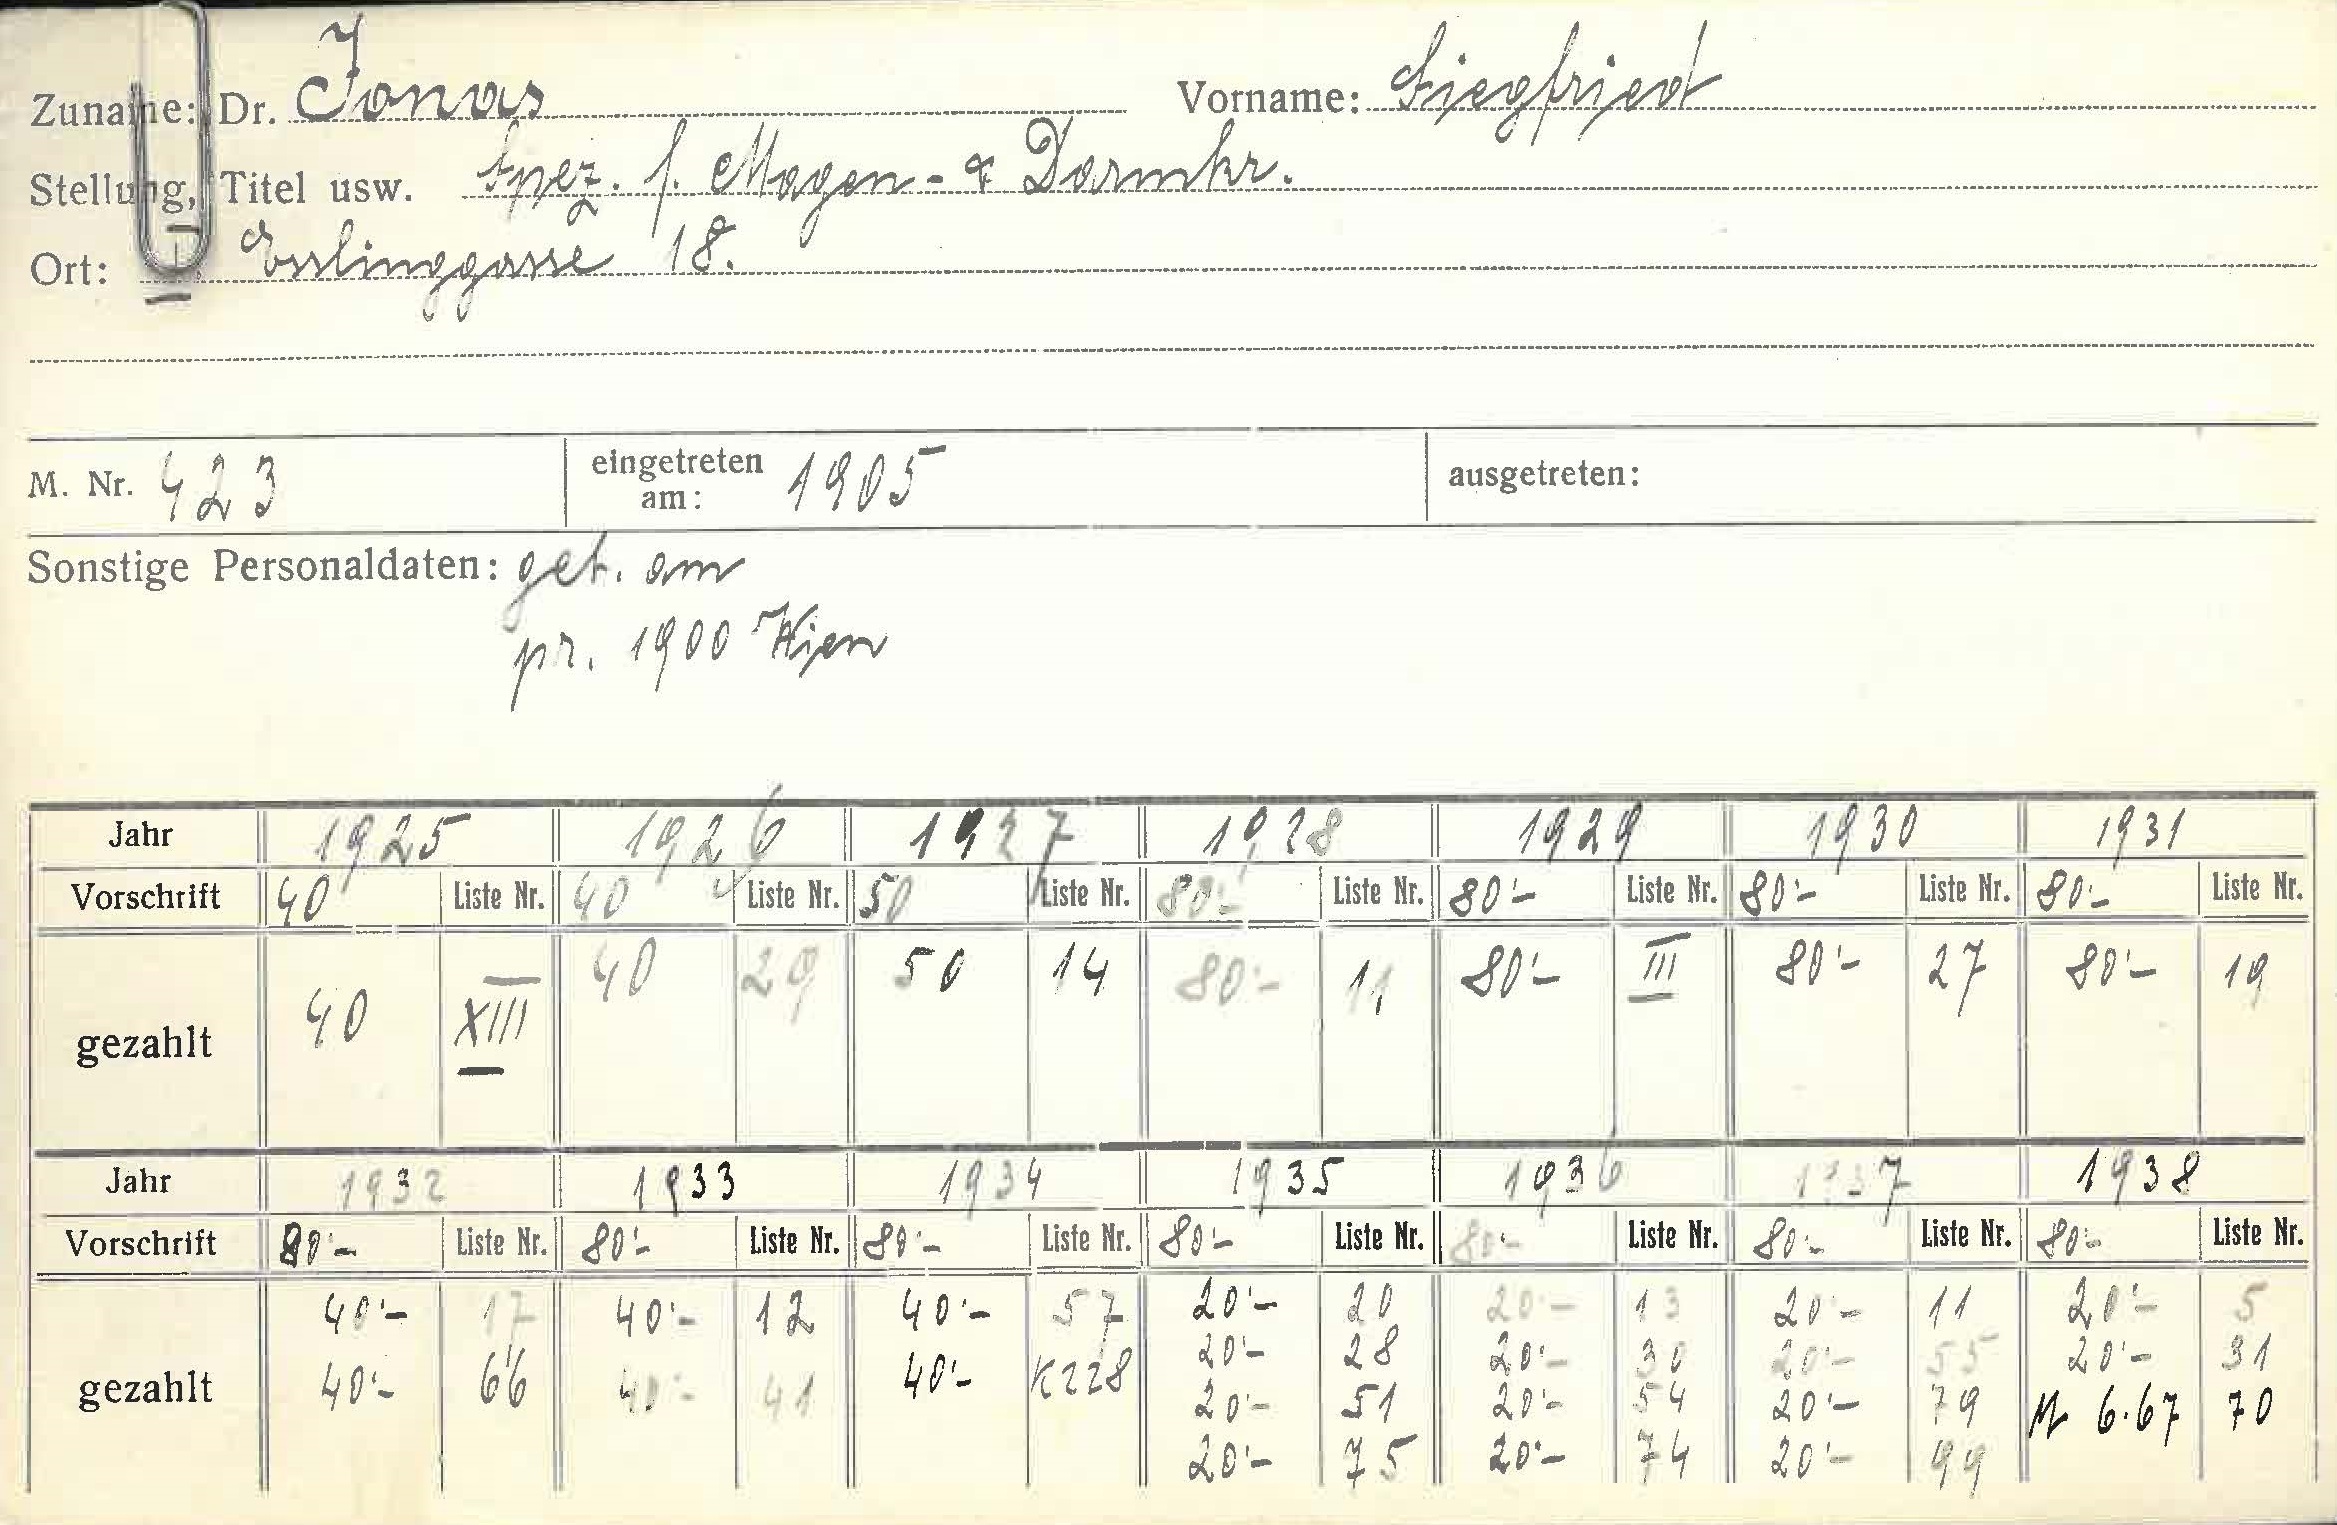 Zuname: Dr. Jonas Vorname: Siegfried
Stellung, Titel usw. Spez. f. Magen- & Darmkr.
Ort: I. Esslinggasse 18.
M. Nr. 423 eingetreten am: 1905 ausgetreten:
Sonstige Personaldaten: geb. am
pr. 1900 Wien
Jahr 1925 1926 1927 1928 1929 1930 1931
Vorschrift 40 Liste Nr. 40 Liste Nr. 50 Liste Nr. 80'- Liste Nr. 80'- Liste Nr. 80'- Liste Nr. 80'- Liste Nr.
gezahlt 40 XIII 40 29 50 14 80'- 11 80'- III 80'- 27 80'- 19
Jahr 1932 1933 1934 1935 1936 1937 1938
Vorschrift 80'- Liste Nr. 80'- Liste Nr. 80'- Liste Nr. 80'- Liste Nr. 80'- Liste Nr. 80'- Liste Nr. 80'- Liste Nr.
gezahlt 40'- 17 40'- 12 40'- 57 20'- 20 20'- 13 20'- 11 20'- 5
40'- 66 40'- 41 40'- K228 20'- 28 20'- 30 20'- 55 20'- 31
20'- 51 20'- 54 20'- 79 M 6.67 70
20'- 75 20'- 74 20'- 99